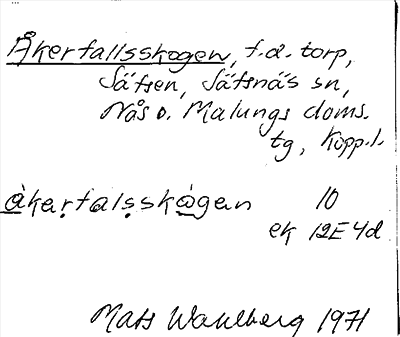 Åkerfallsskogen, f.d. torp,
Säfsen, Säfsnäs sn,
Nås o. Malungs doms.
tg, Kopp.l.
åkaṛfalṣskogan 10
ek 12E4d
Mats Wahlberg 1971